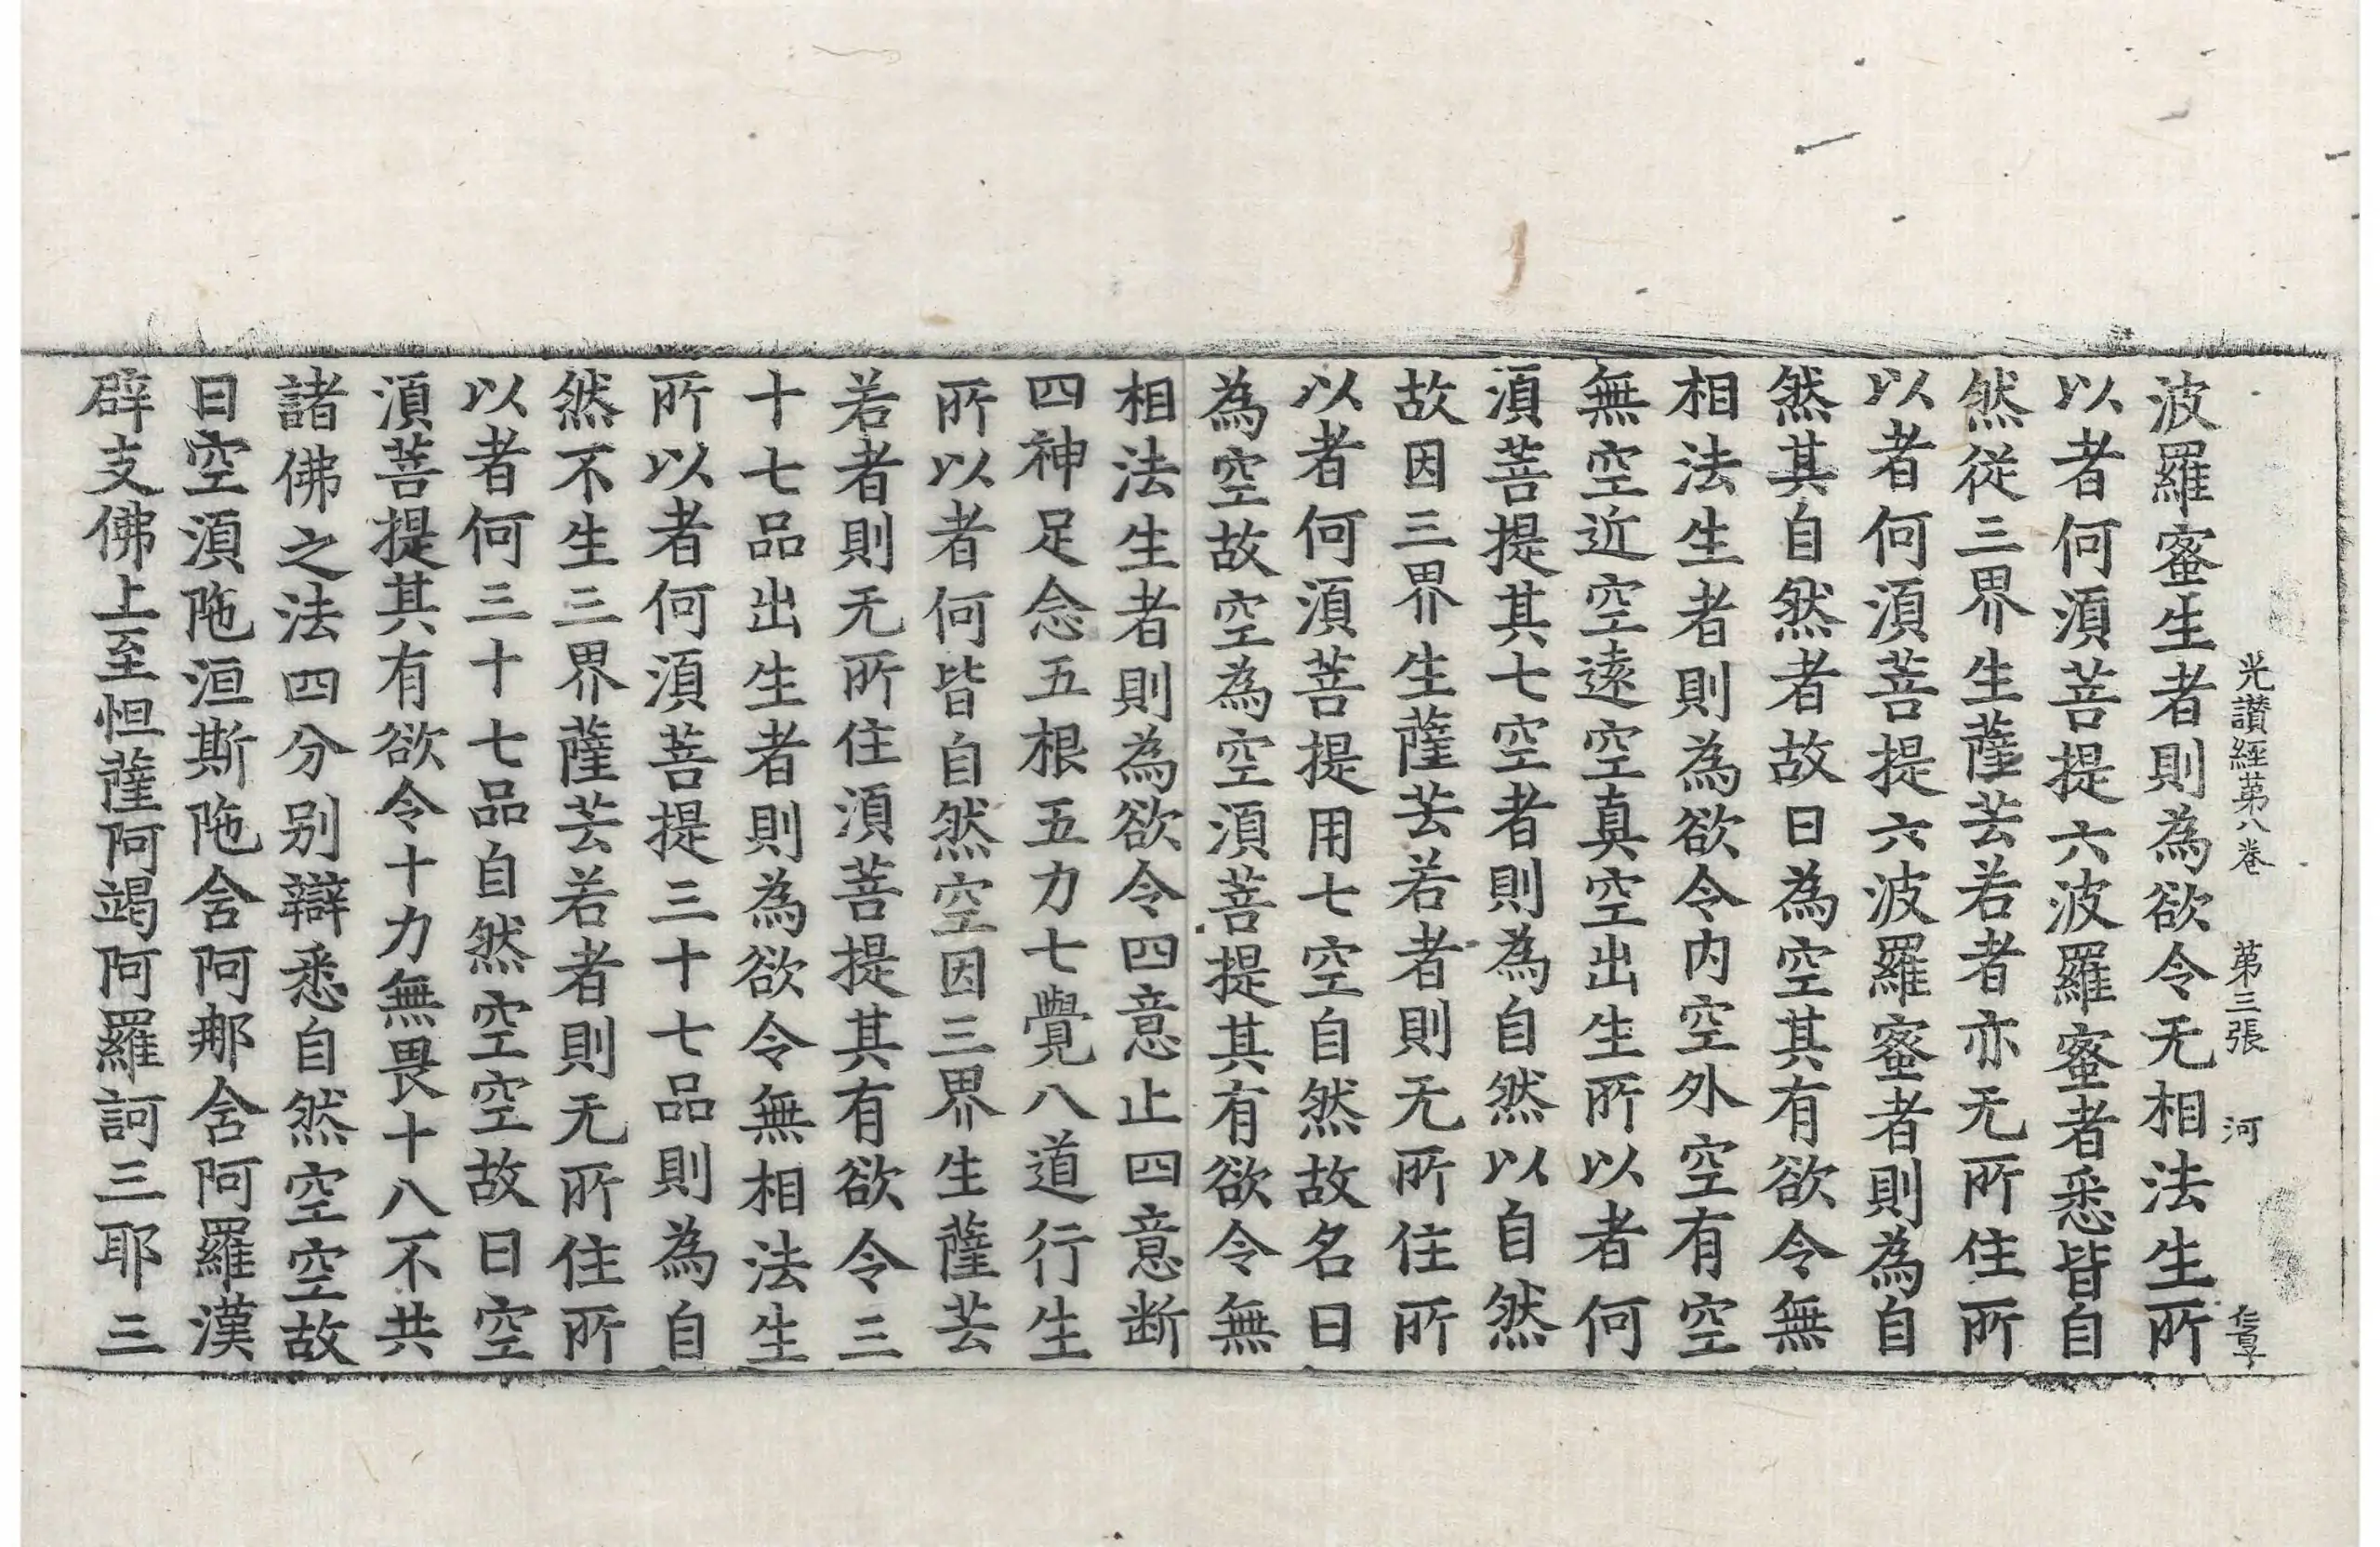 光讃經苐八卷　苐三張　河
波羅蜜生者則為欲令无相法生所
以者何湏菩提六波羅蜜者悉皆自
然從三界生薩芸若者亦无所住所
以者何湏菩提六波羅蜜者則為自
然其自然者故曰為空其有欲令無
相法生者則為欲令内空外空有空
無空近空遠空真空出生所以者何
湏菩提其七空者則為自然以自然
故因三界生薩芸若者則无所住所
以者何湏菩提用七空自然故名曰
為空故空為空湏菩提其有欲令無
相法生者則為欲令四意止四意断
四神足念五根五力七覺八道行生
所以者何皆自然空因三界生薩芸
若者則无所住湏菩提其有欲令三
十七品出生者則為欲令無相法生
所以者何湏菩提三十七品則為自
然不生三界薩芸若者則无所住所
以者何三十七品自然空空故曰空
湏菩提其有欲令十力無畏十八不共
諸佛之法四分别辯悉自然空空故
曰空湏陁洹斯陁含阿那含阿羅漢
辟支佛上至怛薩阿竭阿羅訶三耶三